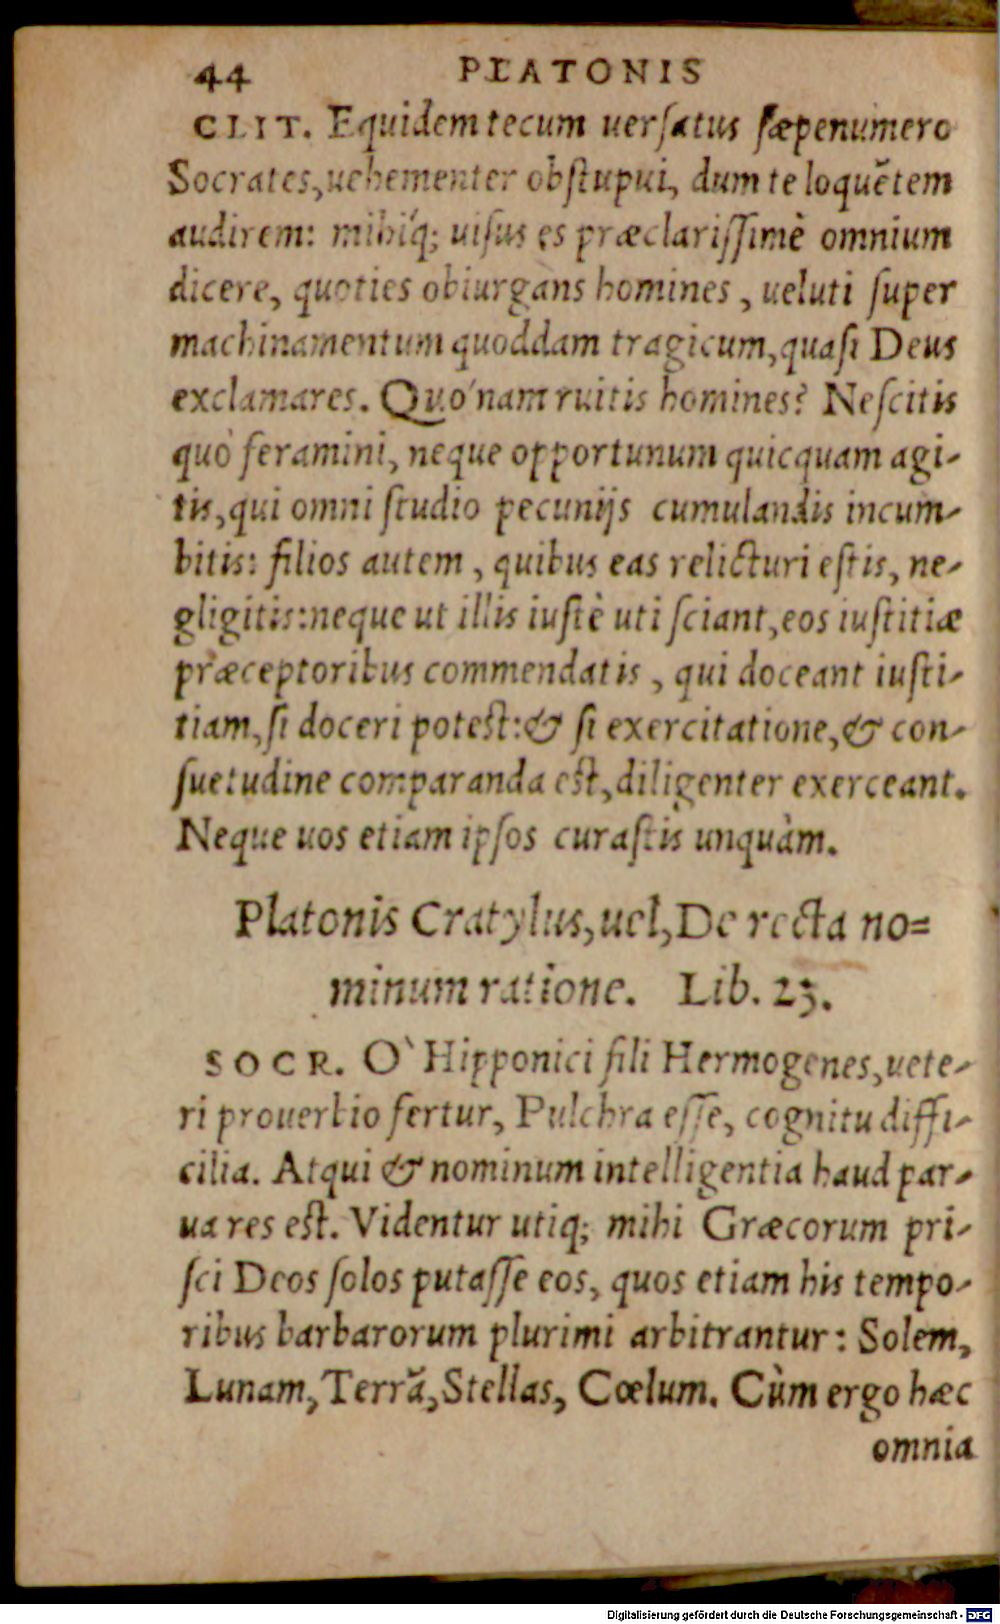 44 PLATONIS
CLIT. Equidem tecum uerſatus ſæpenumero
Socrates, uehementer obſtupui, dum te loquẽtem
audirem: mihiq́; uiſus es præclariſſimè omnium
dicere, quoties obiurgans homines, ueluti ſuper
machinamentum quoddam tragicum, quaſi Deus
exclamares. Quónam ruitis homines? Neſcitis
quò feramini, neque opportunum quicquam agi-
tis, qui omni ſtudio pecunijs cumulandis incum-
bitis: filios autem, quibus eas relicturi eſtis, ne-
gligitis: neque ut illis iuſtè uti ſciant, eos iuſtitiæ
præceptoribus commendatis, qui doceant iuſti-
tiam, ſi doceri poteſt: & ſi exercitatione, & con-
ſuetudine comparanda eſt, diligenter exerceant.
Neque uos etiam ipſos curaſtis unquàm.
Platonis Cratylus, uel, De recta no=
minum ratione. Lib. 23.
SOCR. O` Hipponici fili Hermogenes, uete-
ri prouerbio fertur, Pulchra eſſe, cognitu diffi-
cilia. Atqui & nominum intelligentia haud par-
ua res eſt. Videntur utiq; mihi Græcorum pri-
ſci Deos ſolos putaſſe eos, quos etiam his tempo-
ribus barbarorum plurimi arbitrantur: Solem,
Lunam, Terrã, Stellas, Cœlum. Cùm ergo hæc
omnia
Digitalisierung gefördert durch die Deutsche Forschungsgemeinschaft - DFG